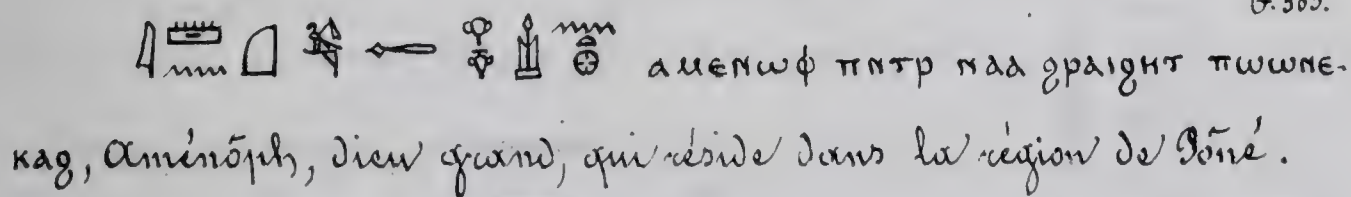 ⲁⲙⲉⲛⲱⲫ ⲡⲛⲧⲣ ⲛⲁⲁ ϩⲣⲁⲓϩⲏⲧ ⲡⲱⲱⲛⲉ-
ⲕⲁϩ, Aménōph, dieu grand, qui réside dans la région de Pōné.